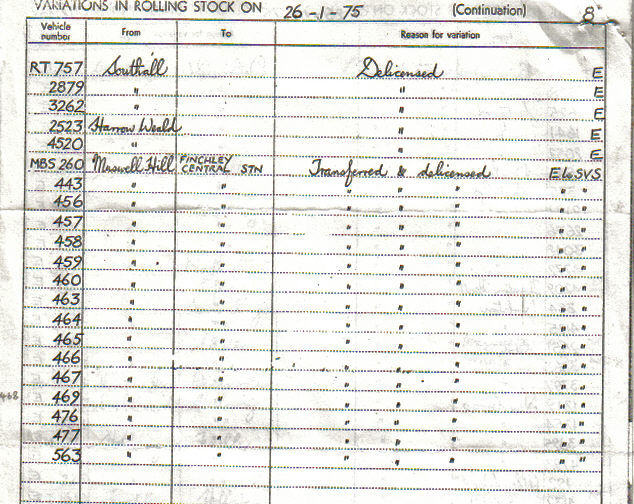 VARIATIONS IN ROLLING STOCK ON 26-1-75 (Continuation) 8
Vehicle number From To Reason for variation
RT 757 Southall Delicensed E
2879 " " E
3262 " " E
2523 Harrow Weald " E
4520 " " E
MBS 260 Muswell Hill FINCHLEY CENTRAL STN Transferred & delicensed E & SVS
443 " " " " " " "
456 " " " " " " "
457 " " " " " " "
458 " " " " " " "
459 " " " " " " "
460 " " " " " " "
463 " " " " " " "
464 " " " " " " "
465 " " " " " " "
466 " " " " " " "
467 " " " " " " "
468
469 " " " " " " "
476 " " " " " " "
477 " " " " " " "
563 " " " " " " "